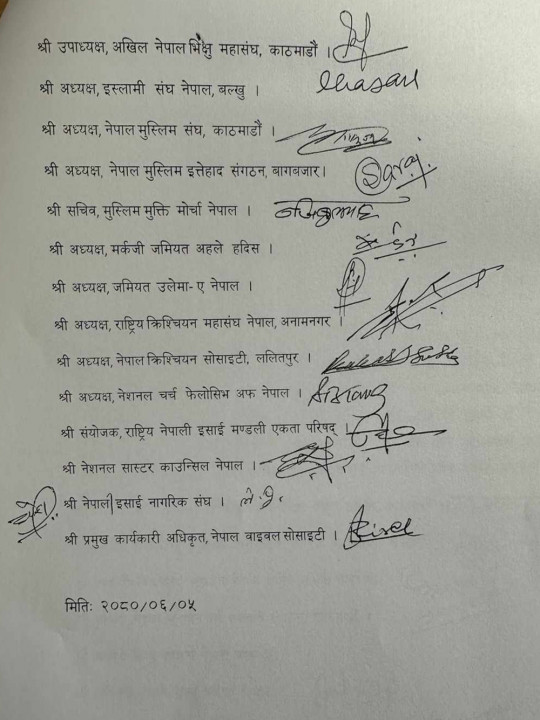 श्री उपाध्यक्ष, अखिल नेपाल भिक्षु महासंघ, काठमाडौं ।
श्री अध्यक्ष, इस्लामी संघ नेपाल, बल्खु ।
श्री अध्यक्ष, नेपाल मुस्लिम संघ, काठमाडौं ।
श्री अध्यक्ष, नेपाल मुस्लिम इत्तेहाद संगठन, बागबजार।
श्री सचिव, मुस्लिम मुक्ति मोर्चा नेपाल ।
श्री अध्यक्ष, मर्कजी जमियत अहले हदिस ।
श्री अध्यक्ष, जमियत उलेमा- ए नेपाल ।
श्री अध्यक्ष, राष्ट्रिय क्रिश्चियन महासंघ नेपाल, अनामनगर ।
श्री अध्यक्ष, नेपाल क्रिश्चियन सोसाइटी, ललितपुर ।
श्री अध्यक्ष, नेशनल चर्च फेलोसिभ अफ नेपाल ।
श्री संयोजक, राष्ट्रिय नेपाली इसाई मण्डली एकता परिषद् ।
श्री नेशनल सास्टर काउन्सिल नेपाल ।
श्री नेपाल इसाई नागरिक संघ ।
श्री प्रमुख कार्यकारी अधिकृत, नेपाल वाइवल सोसाइटी ।
मितिः २०८०/०६/०५